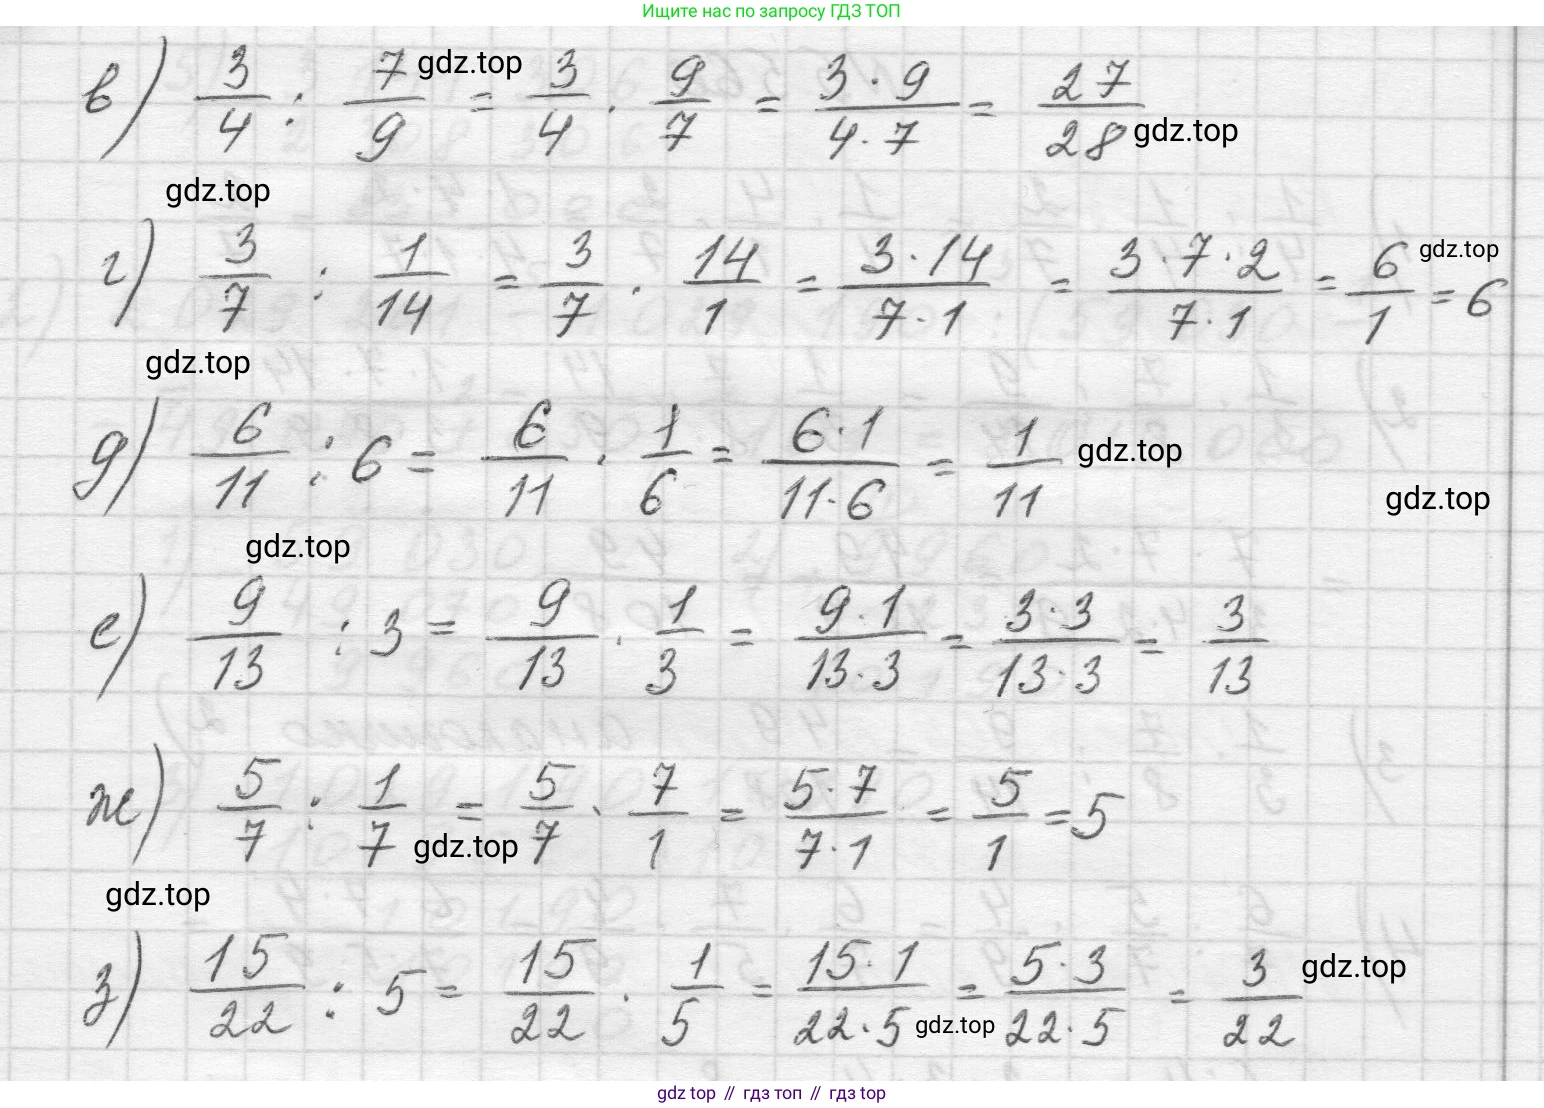 Ищите нас по запросу ГДЗ ТОП
в) 3/4 : 7/9 = 3/4 · 9/7 = 3·9/4·7 = 27/28
gdz.top
gdz.top
gdz.top
г) 3/7 : 1/14 = 3/7 · 14/1 = 3·14/7·1 = 3·7·2/7·1 = 6/1 = 6
gdz.top
gdz.top
д) 6/11 : 6 = 6/11 · 1/6 = 6·1/11·6 = 1/11
gdz.top
gdz.top
gdz.top
е) 9/13 : 3 = 9/13 · 1/3 = 9·1/13·3 = 3·3/13·3 = 3/13
ж) 5/7 : 1/7 = 5/7 · 7/1 = 5·7/7·1 = 5/1 = 5
gdz.top
gdz.top
з) 15/22 : 5 = 15/22 · 1/5 = 15·1/22·5 = 5·3/22·5 = 3/22
gdz.top
gdz.top
gdz top // гдз топ // гдз top